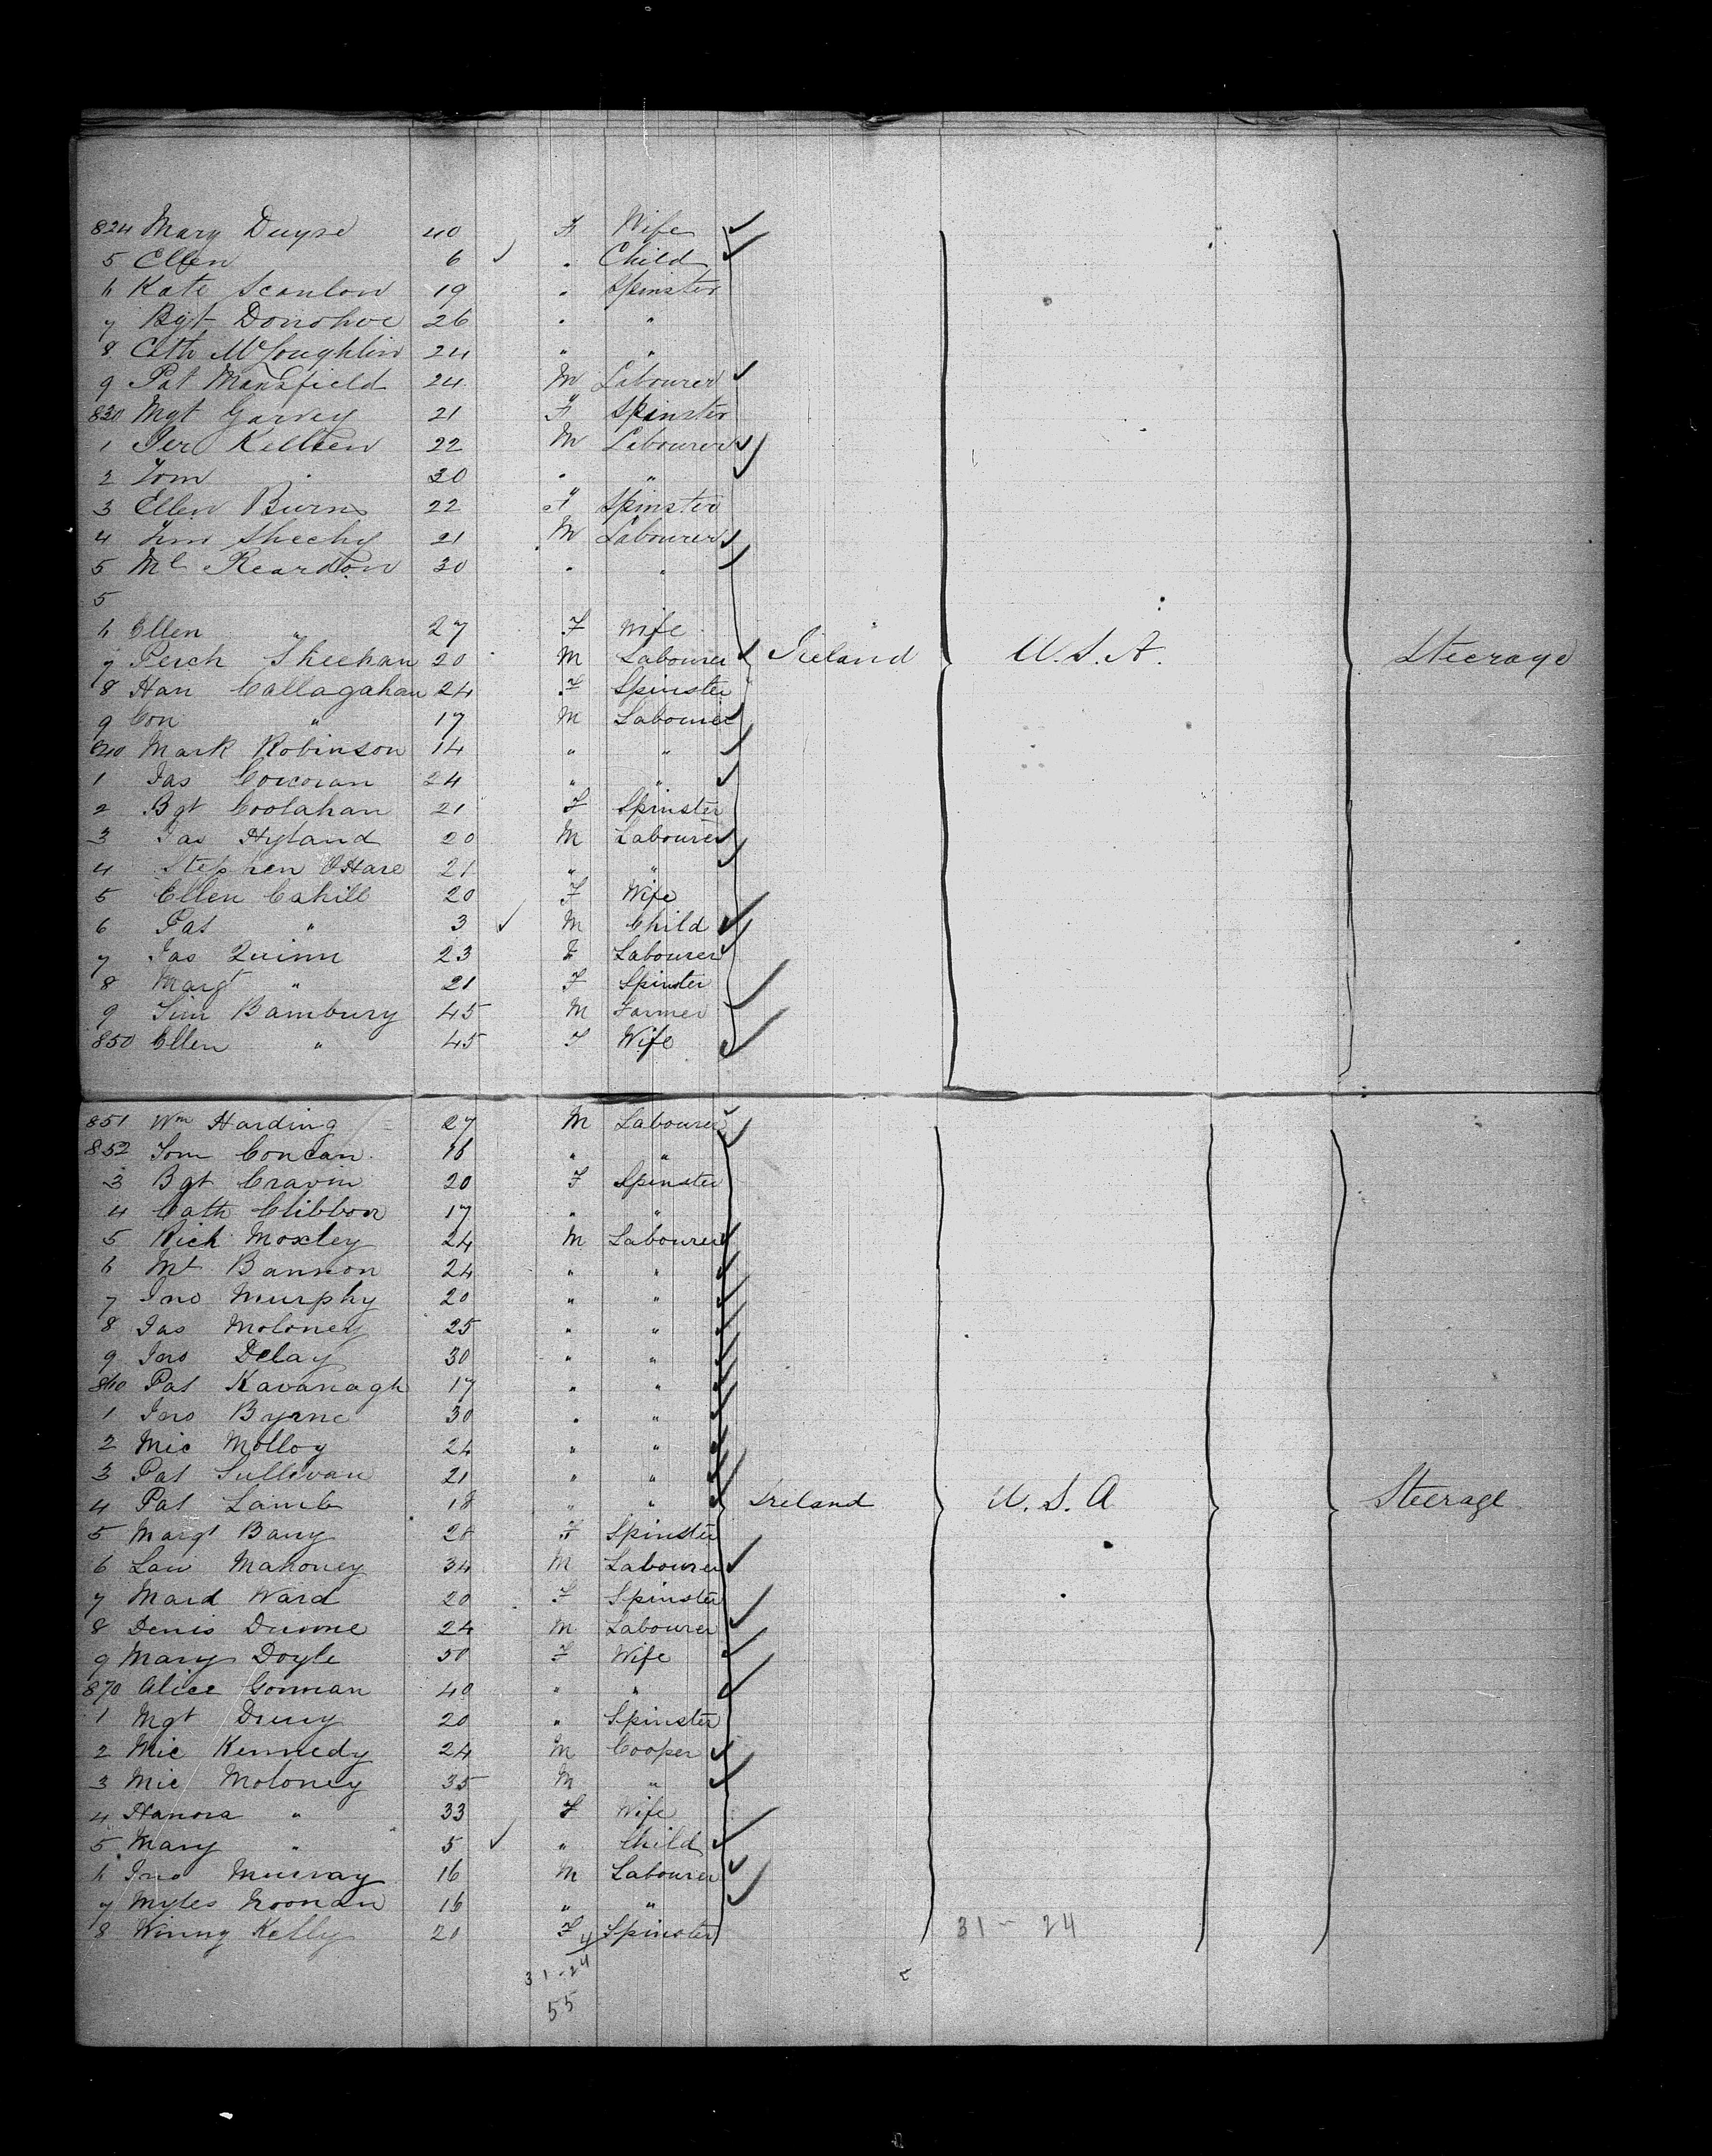 824 Mary Duyse 40 F Wife
5 Ellen 6 ✓ " Child
6 Kate Scanlon 19 " Spinster
7 Bgt Donohoe 26 " "
8 Cath McLoughlin 24 " "
9 Pat Mansfield 24 M Labourer
830 Mgt Garvey 21 F Spinster
1 Jer Kelleen 22 M Labourer
2 Tom 20 " "
3 Ellen Burns 22 F Spinster
4 Tim Sheehy 21 M Labourer
5 Ml Reardon 30 " "
5
6 Ellen " 27 F Wife
7 Perch Sheehan 20 M Labourer Ireland U.S.A. Steerage
8 Han Callagahan 24 F Spinster
9 Con " 17 M Labourer
840 Mark Robinson 14 " "
1 Jas Corcoran 24 " "
2 Bgt Coolahan 21 F Spinster
3 Jas Hyland 20 M Labourer
4 Stephen O'Hare 21 " "
5 Ellen Cahill 20 F Wife
6 Pat " 3 ✓ M Child
7 Jas Quinn 23 F Labourer
8 Margt " 21 F Spinster
9 Tim Bambury 45 M Farmer
850 Ellen " 45 F Wife
851 Wm Harding 27 M Labourer
852 Tom Concan 16 " "
3 Bgt Cravin 20 F Spinster
4 Cath Clibbon 17 " "
5 Rich Moxley 24 M Labourer
6 Mt Bannon 24 " "
7 Jno Murphy 20 " "
8 Jas Moloney 25 " "
9 Jno Delay 30 " "
860 Pat Kavanagh 17 " "
1 Jno Byrne 30 " "
2 Mic Molloy 24 " "
3 Pat Sullivan 21 " "
4 Pat Lamb 18 " " Ireland U.S.A Steerage
5 Margt Barry 28 F Spinster
6 Law Mahoney 34 M Labourer
7 Mard Ward 20 F Spinster
8 Denis Dunne 24 M Labourer
9 Mary Doyle 50 F Wife
870 Alice Gorman 40 " "
1 Mgt Drury 20 " Spinster
2 Mic Kennedy 24 M Cooper
3 Mic Moloney 35 M "
4 Hanora " 33 F Wife
5 Mary " 5 ✓ " Child
6 Jno Murray 16 M Labourer
7 Myles Noonan 16 " "
8 Winny Kelly 21 F Spinster
31 - 24
31-24
55